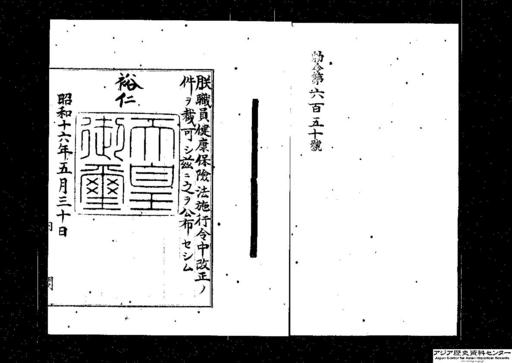 勅令第六百五十號
朕職員健康保險法施行令中改正ノ
件ヲ裁可シ茲ニ之ヲ公布セシム
裕仁
天皇
御璽
昭和十六年五月三十日
内閣
アジア歴史資料センター
Japan Center for Asian Historical Records